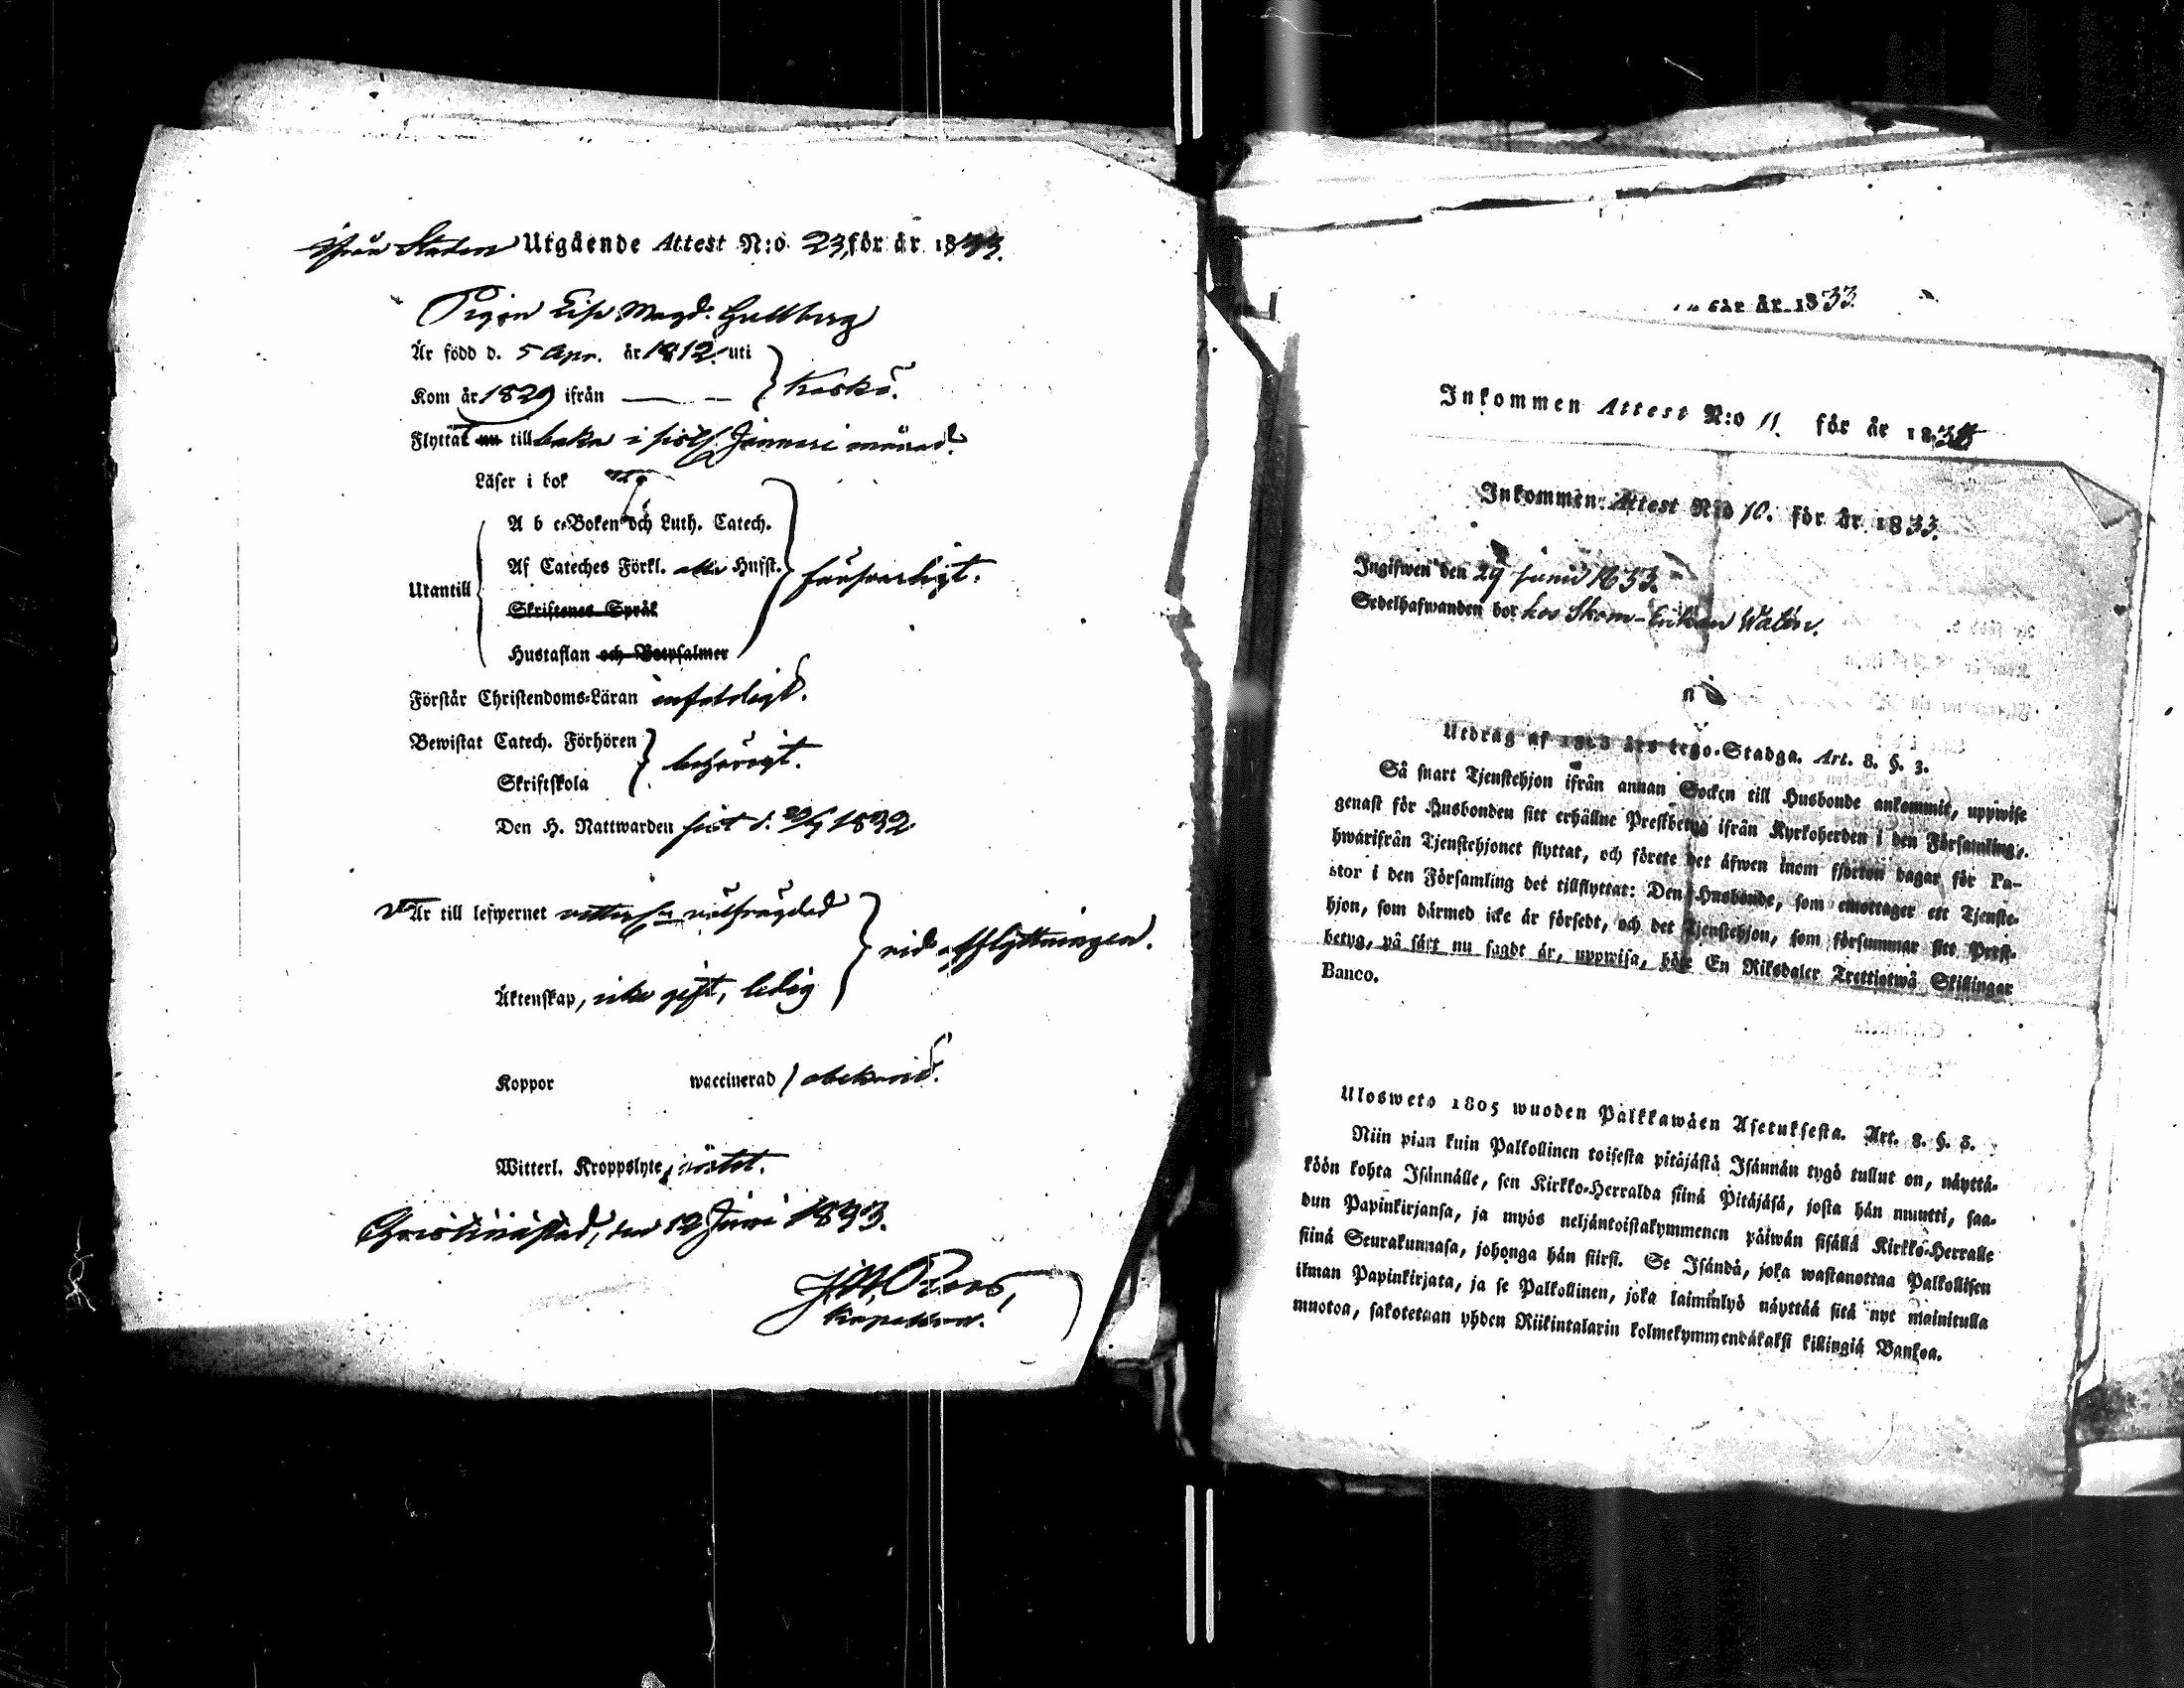 ifrån Staden Utgående Attest N:o 23, för år 1833.
Pigan Lisa Magd. Hallberg
Är född d. 5 Apr. år 1812 uti
Kom år 1829 ifrån — —
Kaskö.
Flyttat nu tillbaka i sistl. Januari månad.
Läser i bok
A b c-Boken och Luth. Catech.
Af Cateches Förkl. Husst.
Utantill
försvarligt.
Skriftenes Språk
Hustaflan och Botpsalmer
Förstår Christendoms-Läran enfaldigt.
Bewistat Catech. Förhören
Skriftskola
behörigt.
Den H. Nattwarden sist d. 1832
Är till lefwernet wälfrägdad
vid afflyttningen.
Äktenskap, icke gift, ledig
Koppor waccinerad / obekant.
Witterl. Kroppslyte, intet.
Christinestad, den 12 Juni 1833.
Kapellan.
för år 1833
Inkommen Attest N:o 11. för år 1833
Inkommen Attest N:o 10. för år 1833.
Ingifwen den 29 Junii 1833.
Sedelhafwanden bor hos Skom-Enkan Walén.
Utdrag af års Lego-Stadga. Art. 8. §. 3.
Så snart Tjenstehjon ifrån annan Socken till Husbonde ankommit, uppwise
genast för Husbonden sitt erhållne Prestbetyg ifrån Kyrkoherden i den Församling,
hwarifrån Tjenstehjonet flyttat, och förete det äfwen inom fjorton dagar för Pa-
stor i den Församling det tillflyttat: Den Husbonde, som emottager ett Tjenste-
hjon, som därmed icke är försedt, och det Tjenstehjon, som försummar sitt Prest-
betyg, på sätt nu sagdt är, uppwisa, böte En Riksdaler Trettiotwå Skillingar
Banco.
Ulosweto 1805 wuoden Palkkawäen Asetuksesta. Art. 8. §. 3.
Niin pian kuin Palkollinen toisesta pitäjästä Isännän tygö tullut on, näyttä-
köön kohta Isännälle, sen Kirkko-Herralda siinä Pitäjäsä, josta hän muutti, saa-
dun Papinkirjansa, ja myös neljäntoistakymmenen päiwän sisällä Kirkko-Herralle
siinä Seurakunnasa, johonga hän siirsi. Se Isändä, joka wastanottaa Palkollisen
ilman Papinkirjata, ja se Palkollinen, joka laiminlyö näyttää sitä nyt mainitulla
muotoa, sakotetaan yhden Riikintalarin kolmekymmendäkaksi killingiä Bankoa.